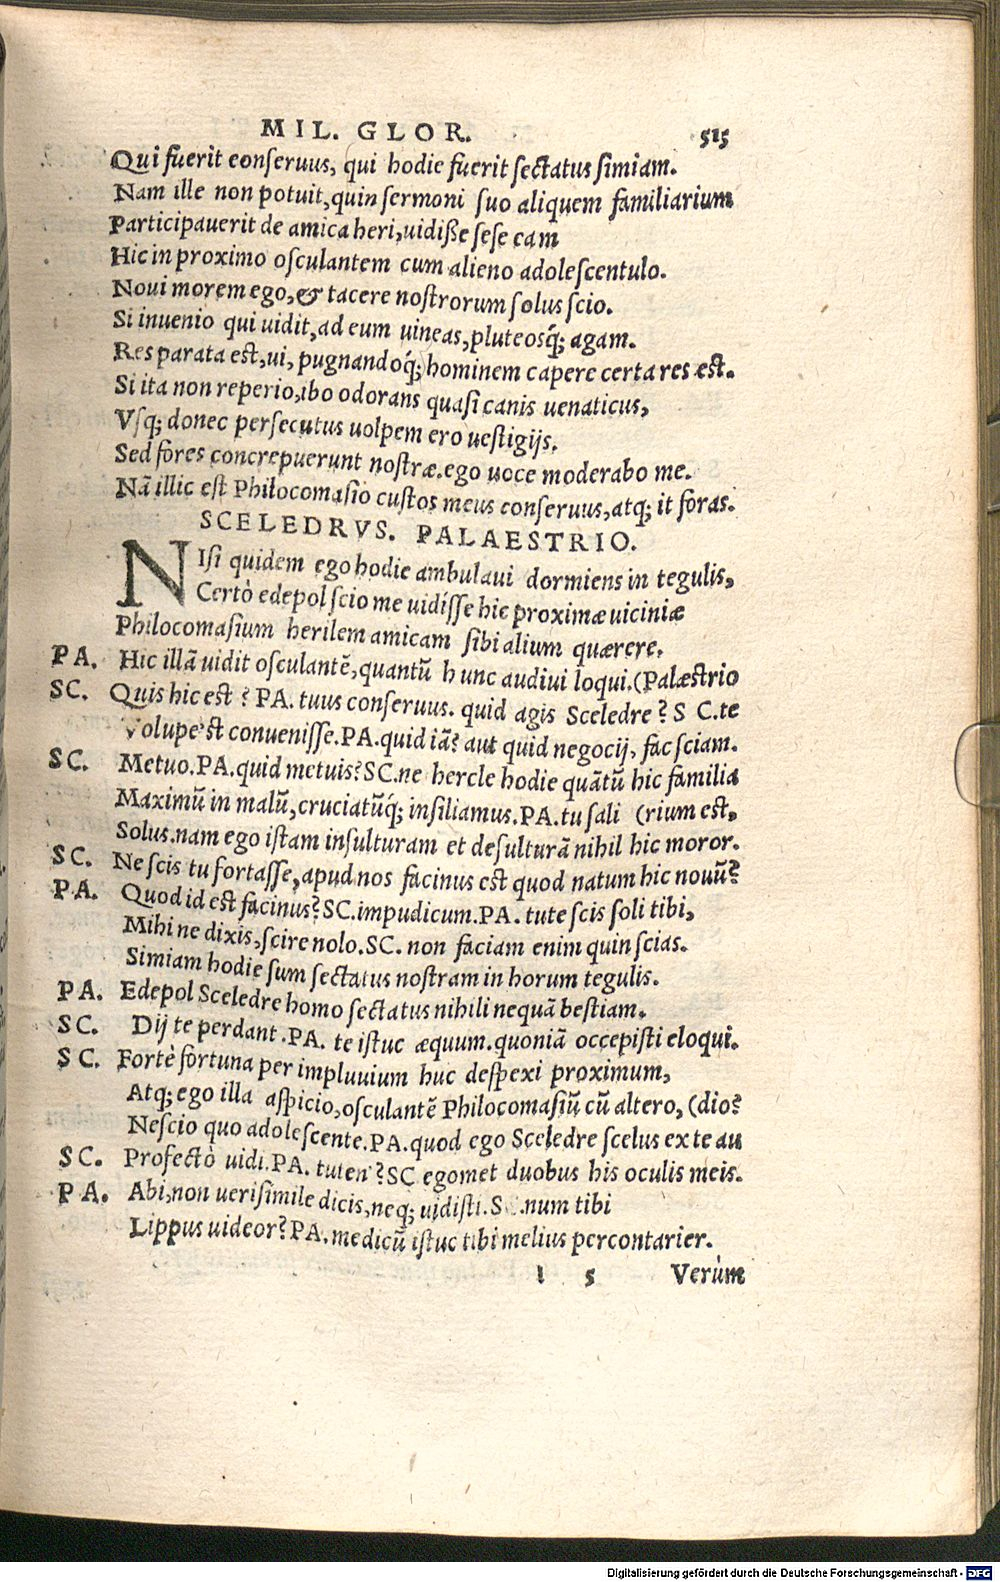 MIL. GLOR. 515
Qui fuerit conseruus, qui hodie fuerit sectatus simiam.
Nam ille non potuit, quin sermoni suo aliquem familiarium
Participauerit de amica heri, uidiße sese eam
Hic in proximo osculantem cum alieno adolescentulo.
Noui morem ego, & tacere nostrorum solus scio.
Si inuenio qui uidit, ad eum uineas, pluteosq́; agam.
Res parata est, ui, pugnandoq́; hominem capere certa res est.
Si ita non reperio, ibo odorans quasi canis uenaticus,
Vsq; donec persecutus uolpem ero uestigijs.
Sed fores concrepuerunt nostræ. ego uoce moderabo me.
Nã illic est Philocomasio custos meus conseruus, atq; it foras.
SCELEDRVS. PALAESTRIO.
NIsi quidem ego hodie ambulaui dormiens in tegulis,
Certò edepol scio me uidisse hic proximæ uiciniæ
Philocomasium herilem amicam sibi alium quærere.
PA. Hic illã uidit osculantẽ, quantũ hunc audiui loqui. (Palæstrio
SC. Quis hic est? PA. tuus conseruus. quid agis Sceledre? SC. te
Volupe'st conuenisse. PA. quid iã? aut quid negocij, fac sciam.
SC. Metuo. PA. quid metuis? SC. ne hercle hodie quãtũ hic familia
Maximũ in malũ, cruciatũq́; insiliamus. PA. tu sali (rium est,
Solus. nam ego istam insulturam et desulturã nihil hic moror.
SC. Nescis tu fortasse, apud nos facinus est quod natum hic nouũ?
PA. Quod id est facinus? SC. impudicum. PA. tute scis soli tibi,
Mihi ne dixis, scire nolo. SC. non faciam enim quin scias.
Simiam hodie sum sectatus nostram in horum tegulis.
PA. Edepol Sceledre homo sectatus nihili nequã bestiam.
SC. Dij te perdant. PA. te istuc æquum. quoniã occepisti eloqui.
SC. Fortè fortuna per impluuium huc despexi proximum,
Atq; ego illa aspicio, osculantẽ Philocomasiũ cũ altero, (dio?
Nescio quo adolescente. PA. quod ego Sceledre scelus ex te au
SC. Profectò uidi. PA. tuten'? SC egomet duobus his oculis meis.
PA. Abi, non uerisimile dicis, neq; uidisti. SC. num tibi
Lippus uideor? PA. medicũ istuc tibi melius percontarier.
l 5 Verùm
Digitalisierung gefördert durch die Deutsche Forschungsgemeinschaft - DFG